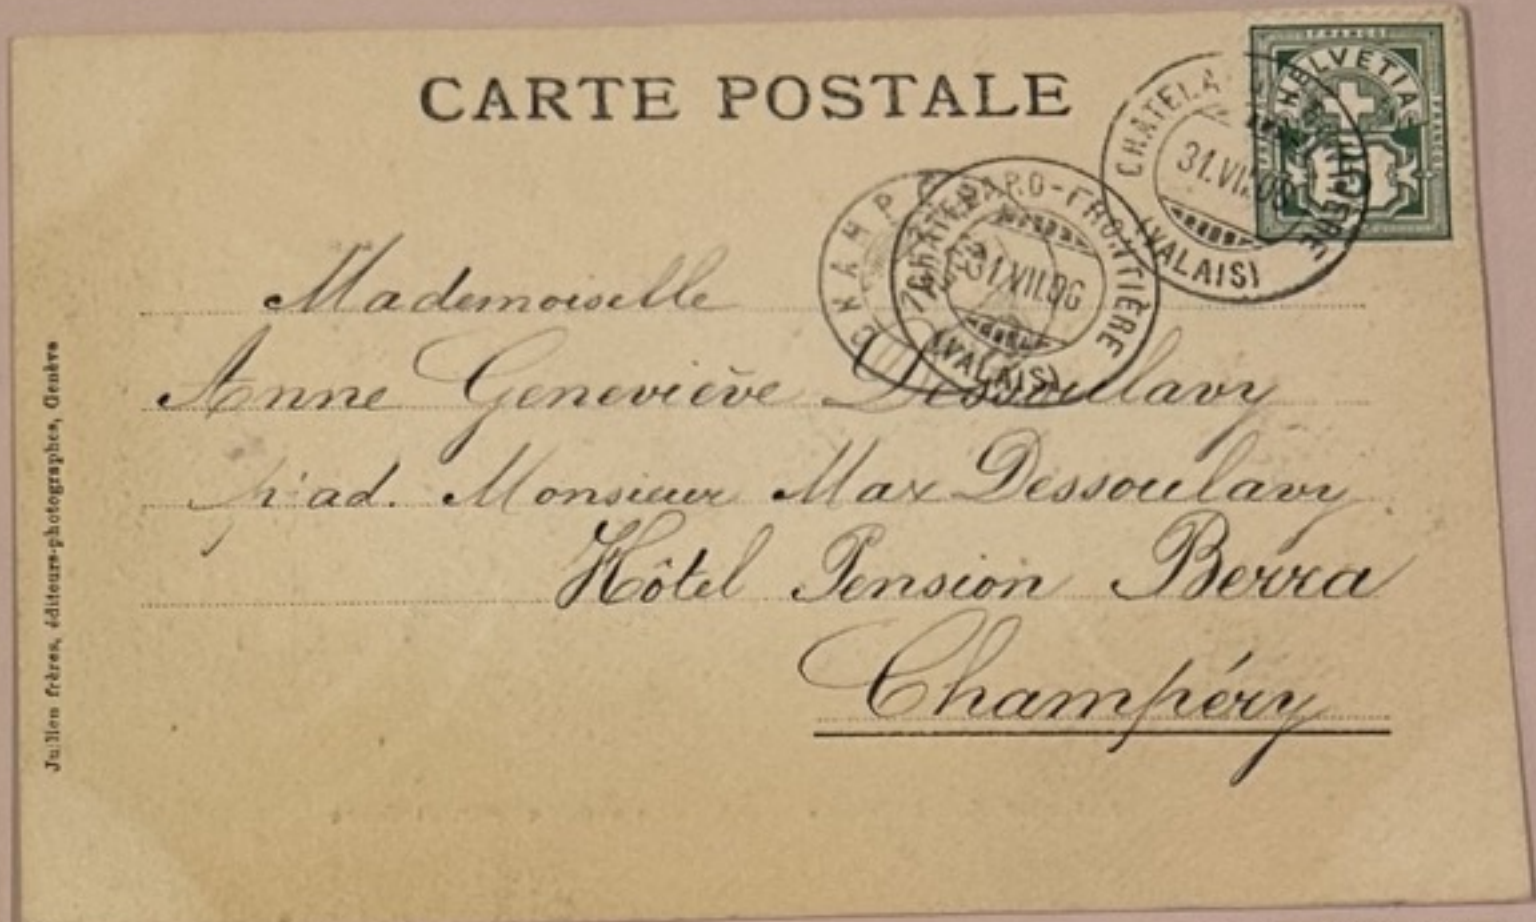 CARTE POSTALE
FRANCO
HELVETIA
CHATELARD-FRONTIÈRE
31.VII.06
(VALAIS)
CHATELARD-FRONTIÈRE
31.VII.06
(VALAIS)
CHAMP
Mademoiselle
Anne Geneviève Dessoulavy
p. ad. Monsieur Max Dessoulavy
Hôtel Pension Berra
Champéry
Jullien frères, éditeurs-photographes, Genève